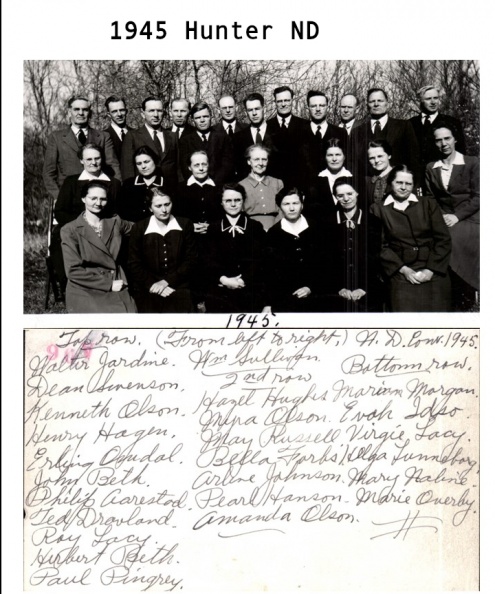 1945 Hunter ND
1945.
Top row. (From left to right.) N. D. Conv. 1945.
Walter Jardine.
Dean Swenson.
Kenneth Olson.
Henry Hagen.
Erling
John Beth.
Philip Aarestad.
Ted Dravland.
Roy Lacy.
Herbert Beth.
Paul Pingrey.
Wm Sullivan.
2nd row
Hazel Hughes
Mina Olson.
May Russell
Bella Forbs
Arline Johnson.
Pearl Hanson.
Amanda Olson.
Bottom row.
Mariam Morgan.
Evah
Virgie Lacy.
Olga
Mary
Marie Overby.